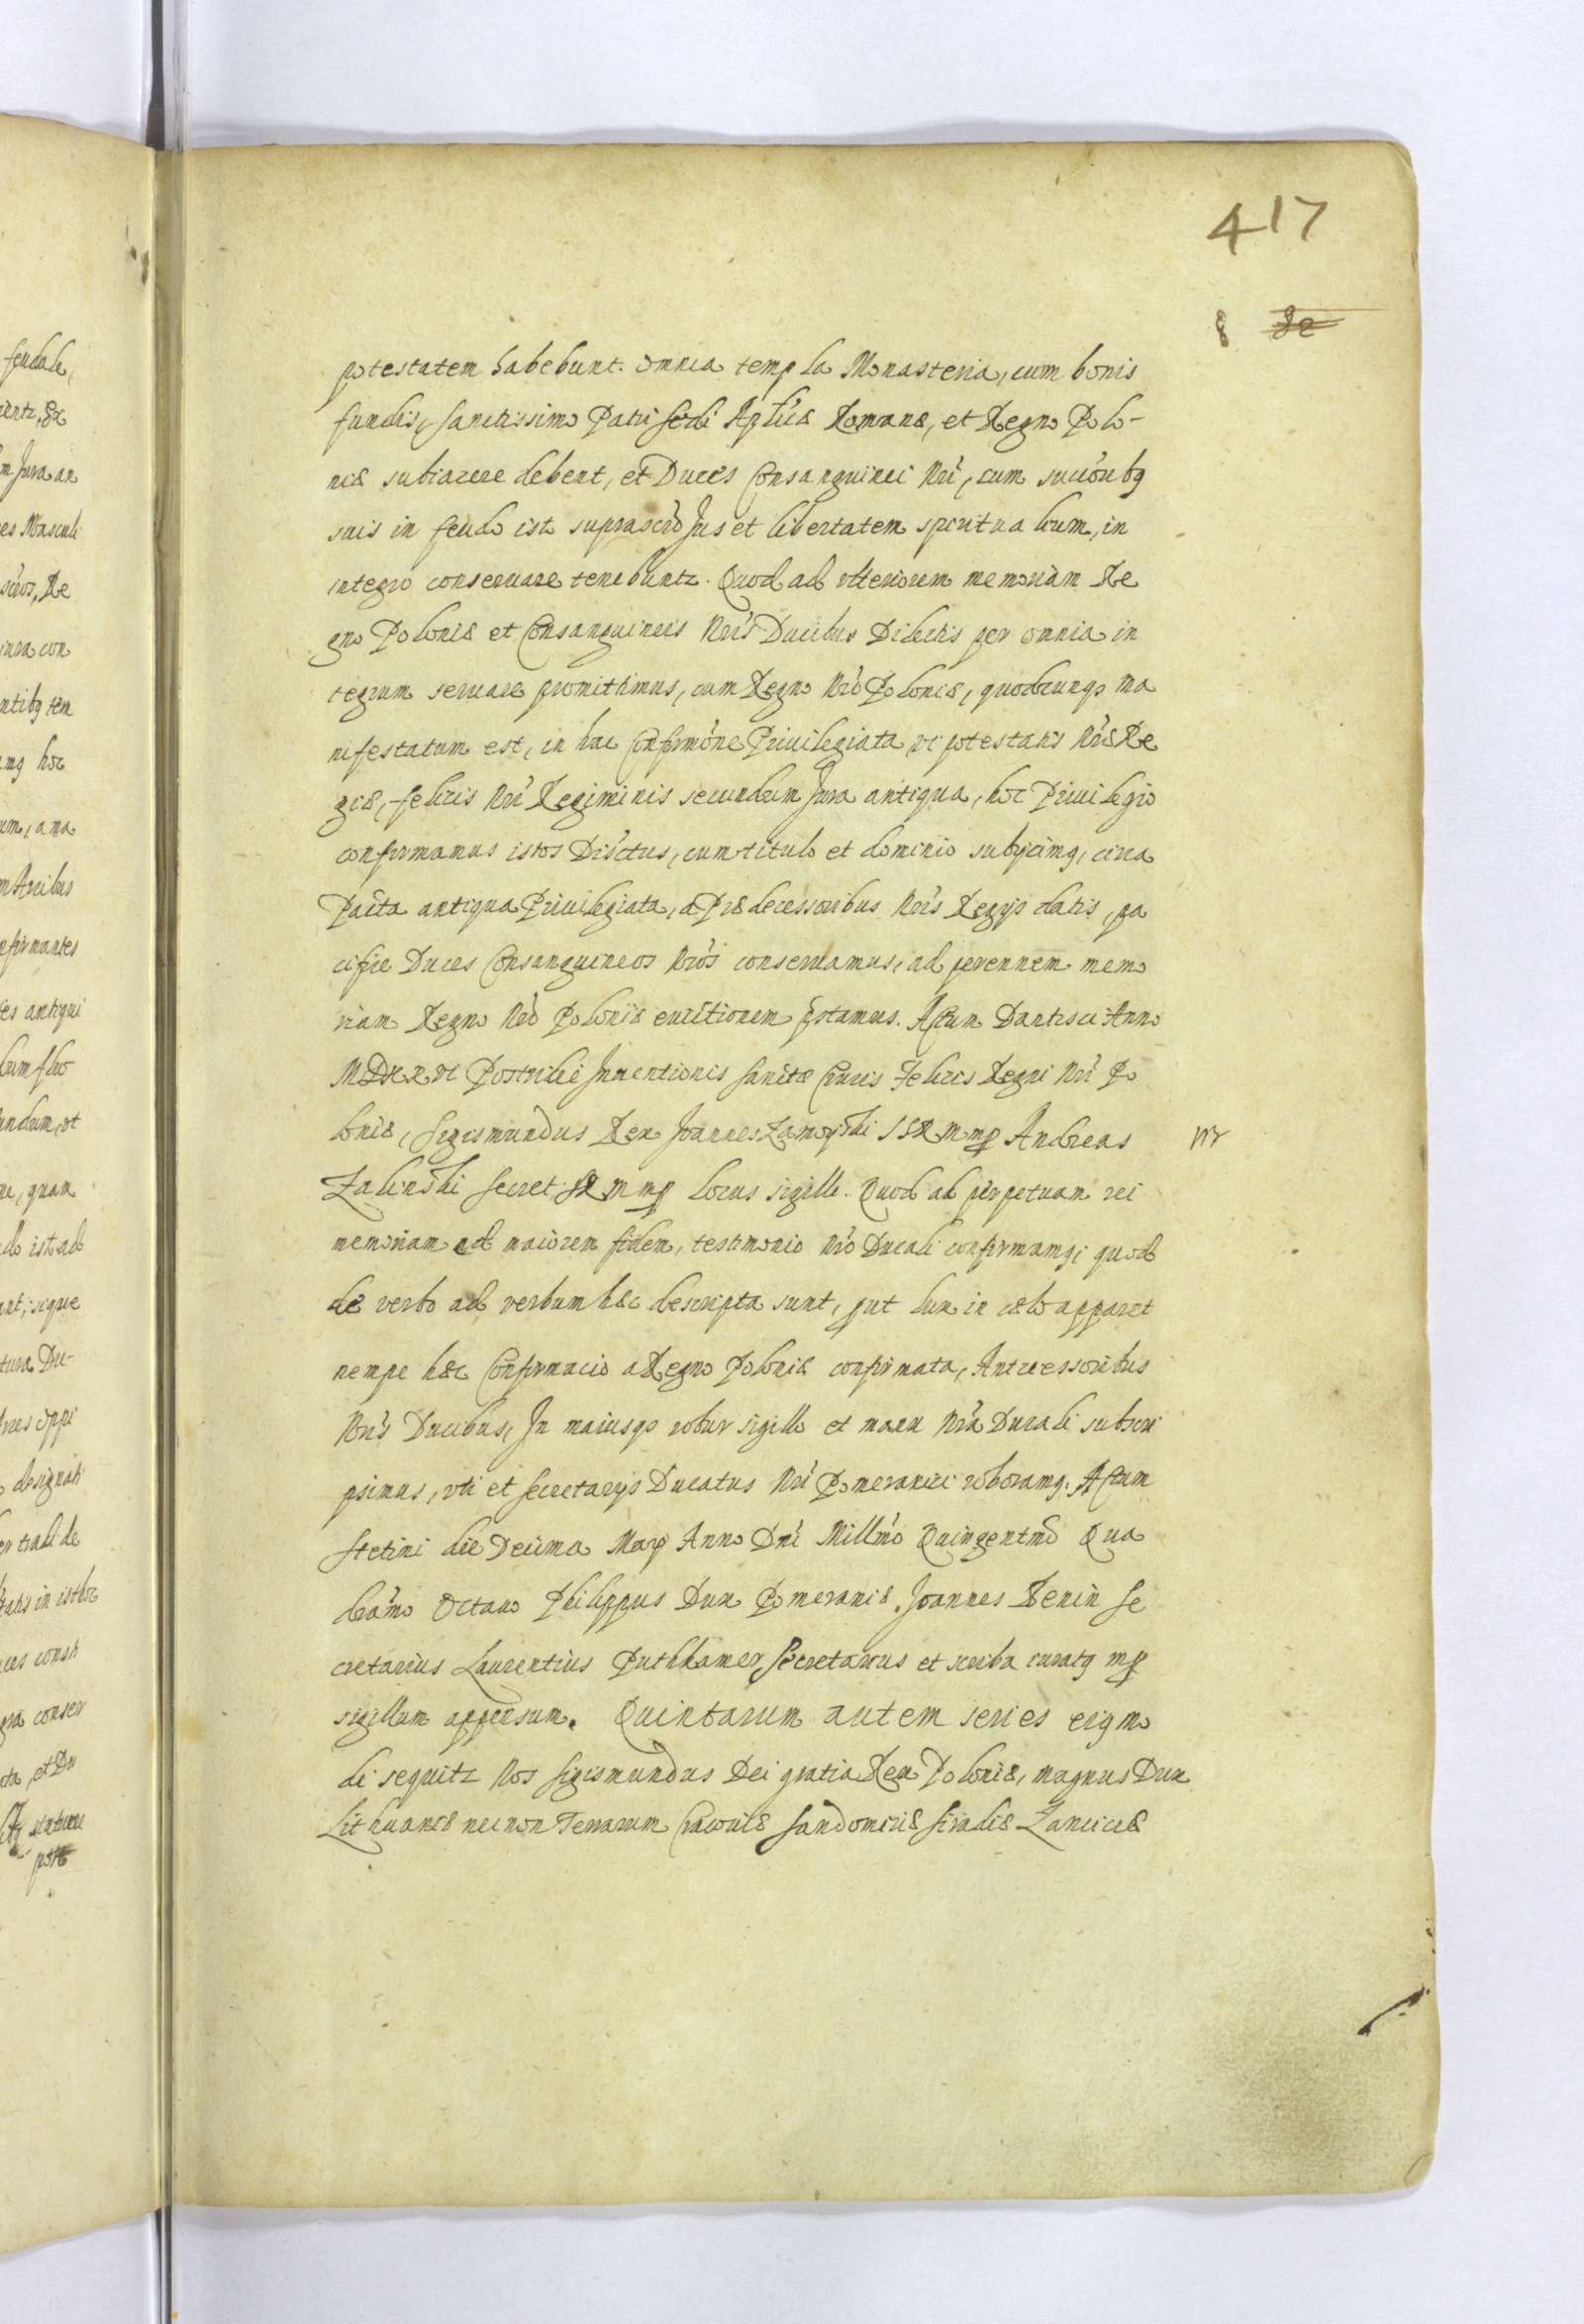 417
8
potestatem habebunt. omnia templa Monasteria, cum bonis
fundis, Sanctissimo Patri Sedi Aplicæ Romanæ, et Regno Polo-
niæ subiacere debent, et Duces Consanguinei Nri, cum succoribq
suis in feudo isto suprascro Jus et libertatem spiritualium, in
integro conseruare tenebuntz. Quod ad vlteriorem memoriam Re
gno Poloniæ et Consanguineis Nris Ducibus Dilectis per omnia in
tegrum seruare promittimus, cum Regno Nro Poloniæ, quodcunqz ma
nifestatum est, in hac Confirmone Priuilegiata vt potestatis Nræ Re
giæ, felicis Nri Regiminis secundum Jura antiqua, hoc Priuilegio
confirmamus istos Disctus, cum titulo et dominio subijcimq, circa
Pacta antiqua Priuilegiata, a Prædecessoribus Nris Regijs datis, pa
cifice Duces Consanguineos Nros conseruamus, ad perennem memo
riam Regno Nro Poloniæ euictionem pstamus. Actum Dantisci Anno
MDXXVI Postridie Inuentionis Sanctæ Crucis Felicis Regni Nri Po
loniæ, Sigismundus Rex Joannes Zamoyski SSRM mp Andreas
Zalinski Secret: SRM mp Locus sigilli. Quod ad perpetuam rei
memoriam ad maiorem fidem, testimonio Nro Ducali confirmamq, quod
de verbo ad verbum hæc descripta sunt, put lux in cælo apparet
nempe hæc Confirmacio a Regno Poloniæ confirmata, Antecessoribus
Nris Ducibus, In maiusqz robur sigillo et manu Nra Ducali subscri
psimus, vti et Secretarijs Ducatus Nri Pomeranici roboramq. Actum
Stetini die Decima Maij Anno Dni Millmo Quingentmo Qua
dramo Octauo Philippus Dux Pomeraniæ. Joannes Renin Se
cretarius Laurentius Puthkamer Secretarius et scriba iuratq mp
sigillum appensum. Quintarum autem series eiqmo
di sequitz Nos Sigismundus Dei gratia Rex Poloniæ, magnus Dux
Lithuaniæ necnon Terrarum Cracouiæ Sandomiriæ Siradiæ Lanciciæ